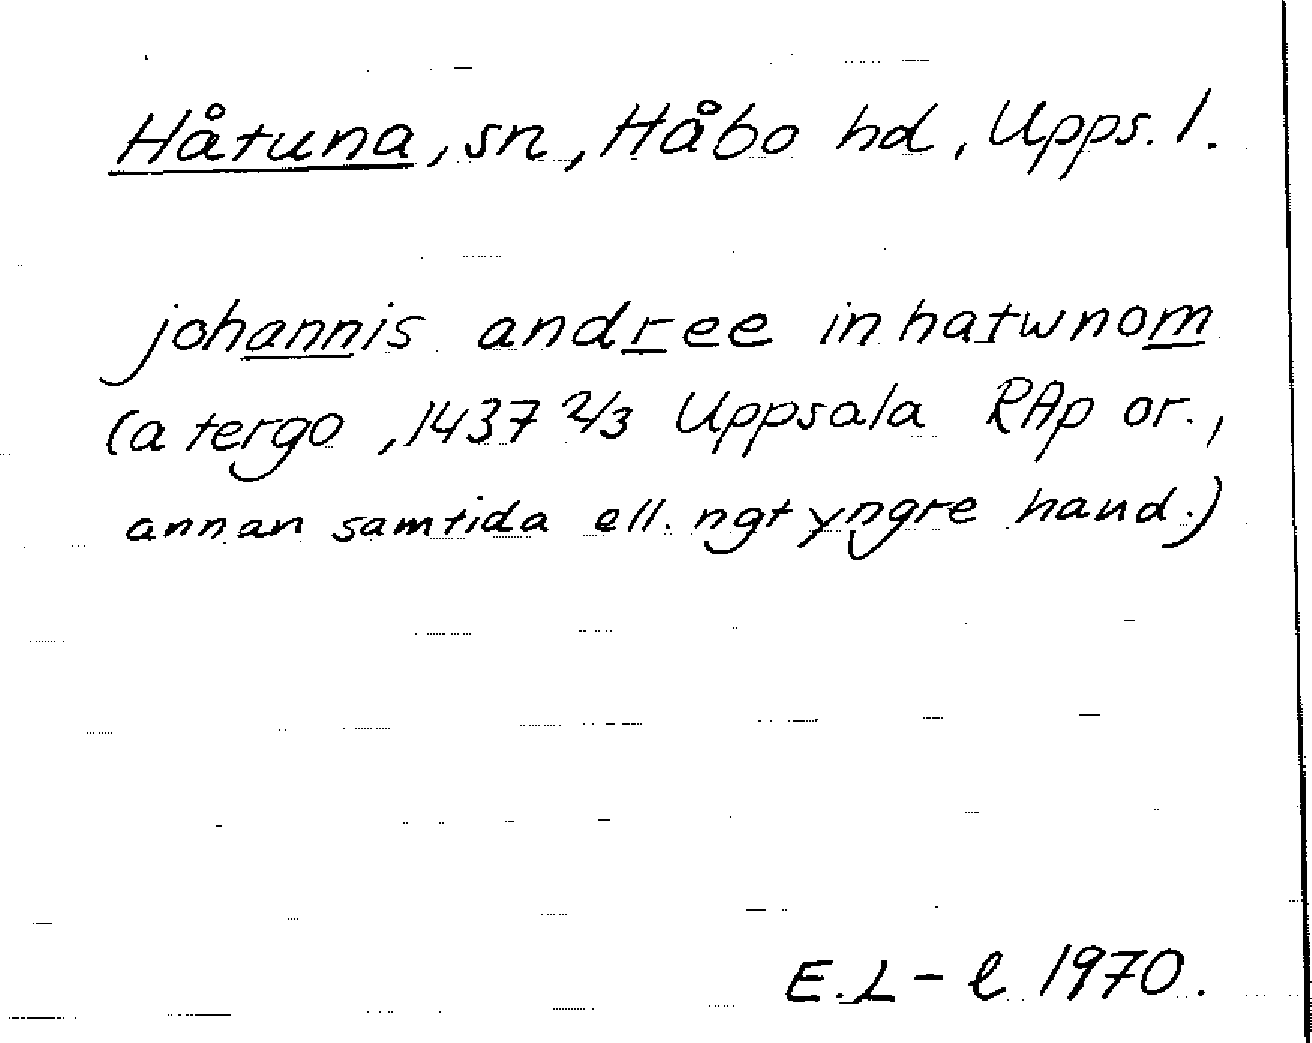 Håtuna, sn, Håbo hd, Upps. l.
johannis andree in hatwnom
(a tergo, 1437 2/3 Uppsala RAp or.,
annan samtida ell. ngt yngre hand.)
E.L-l 1970.